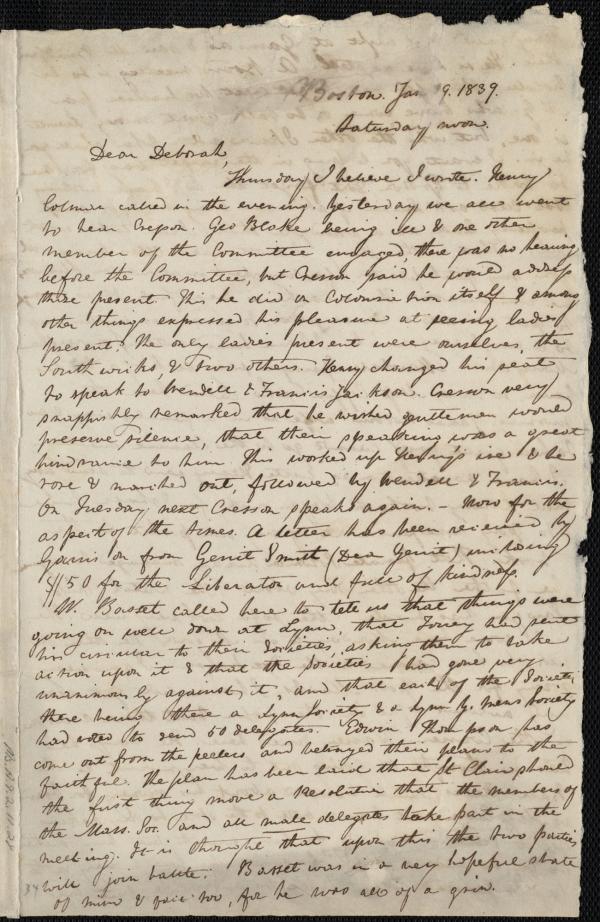 Boston. Jan 19. 1839.
Saturday noon.
Dear Deborah,
Thursday I believe I wrote. Henry
Colman called in the evening. Yesterday we all went
to hear Cresson. Geo Blake being ill & one other
member of the Committee engaged, there was no hearing
before the Committee, but Cresson said he would address
those present. This he did on Colonization itself & among
other things expressed his pleasure at seeing ladies
present. The only ladies present were ourselves, the
Southwicks, & two others. Henry changed his seat
to speak to Wendell & Francis Jackson. Cresson very
snappishly remarked that he wished gentlemen would
preserve silence, that their speaking was a great
hindrance to him. This worked up Henry's ire & he
rose & marched out, followed by Wendell & Francis.
On Tuesday next Cresson speaks again. - Now for the
aspect of the times. A letter has been received by
Garrison from Gerrit Smith (Dear Gerrit) inclosing
$50 for the Liberator and full of kindness.
W. Basset called here to tell us that things were
going on well down at Lynn, that Torrey had sent
his circular to their Societies, asking them to take
action upon it & that the Societies had gone very
unanimously against it, and that each of the Societies
there being there a Lynn Society & a Lynn Y. mens Society
had voted to send 50 delegates. Edwin Thompson has
come out from the peelers and betrayed their plans to the
faithful. The plan has been laid that St Clair should
the first thing move a Resolution that the members of
the Mass. Soc. and all male delegates take part in the
meeting. It is thought that upon this the two parties
will join battle. Basset was in a very hopeful state
of mind & fair too, for he was all of a grin.